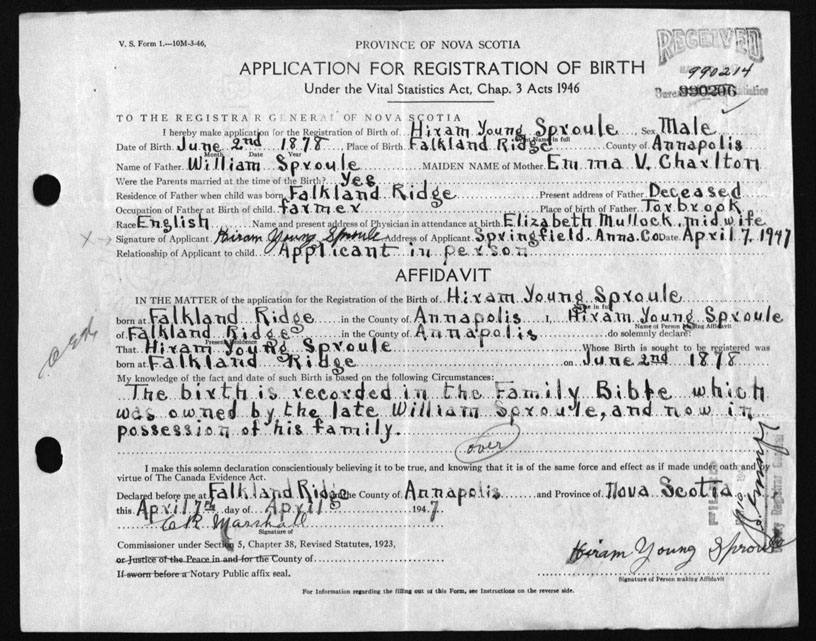 V. S. Form 1.—10M-3-46,
PROVINCE OF NOVA SCOTIA
RECEIVED
APPLICATION FOR REGISTRATION OF BIRTH
990214
Under the Vital Statistics Act, Chap. 3 Acts 1946
990206
TO THE REGISTRAR GENERAL OF NOVA SCOTIA
I hereby make application for the Registration of Birth of Hiram Young Sproule Sex Male
Name in full
Date of Birth June 2nd 1878 Place of Birth Falkland Ridge County of Annapolis
Month Date Year
Name of Father William Sproule MAIDEN NAME of Mother Emma V. Charlton
Were the Parents married at the time of the Birth? Yes
Residence of Father when child was born Falkland Ridge Present address of Father Deceased
Occupation of Father at Birth of child farmer Place of birth of Father Torbrook
Race English Name and present address of Physician in attendance at birth Elizabeth Mullock, midwife
X → Signature of Applicant Hiram Young Sproule Address of Applicant Springfield. Anna. Co. Date April 7, 1947
Relationship of Applicant to child Applicant in person
AFFIDAVIT
IN THE MATTER of the application for the Registration of the Birth of Hiram Young Sproule
Name in full
born at Falkland Ridge in the County of Annapolis I, Hiram Young Sproule
Name of Person Making Affidavit
of Falkland Ridge in the County of Annapolis do solemnly declare:
Present Residence
That Hiram Young Sproule Whose Birth is sought to be registered was
born at Falkland Ridge on June 2nd 1878
My knowledge of the fact and date of such Birth is based on the following Circumstances:
The birth is recorded in the Family Bible which
was owned by the late William Sproule, and now in
possession of his family.
over
I make this solemn declaration conscientiously believing it to be true, and knowing that it is of the same force and effect as if made under oath and by
virtue of The Canada Evidence Act.
Declared before me at Falkland Ridge in the County of Annapolis and Province of Nova Scotia
this April 7th day of April 1947
C R Marshall
Signature of
Commissioner under Section 5, Chapter 38, Revised Statutes, 1923,
or Justice of the Peace in and for the County of
Hiram Young Sproule
If sworn before a Notary Public affix seal.
Signature of Person making Affidavit
For Information regarding the filling out of this Form, see Instructions on the reverse side.
FILED
Deputy Registrar General